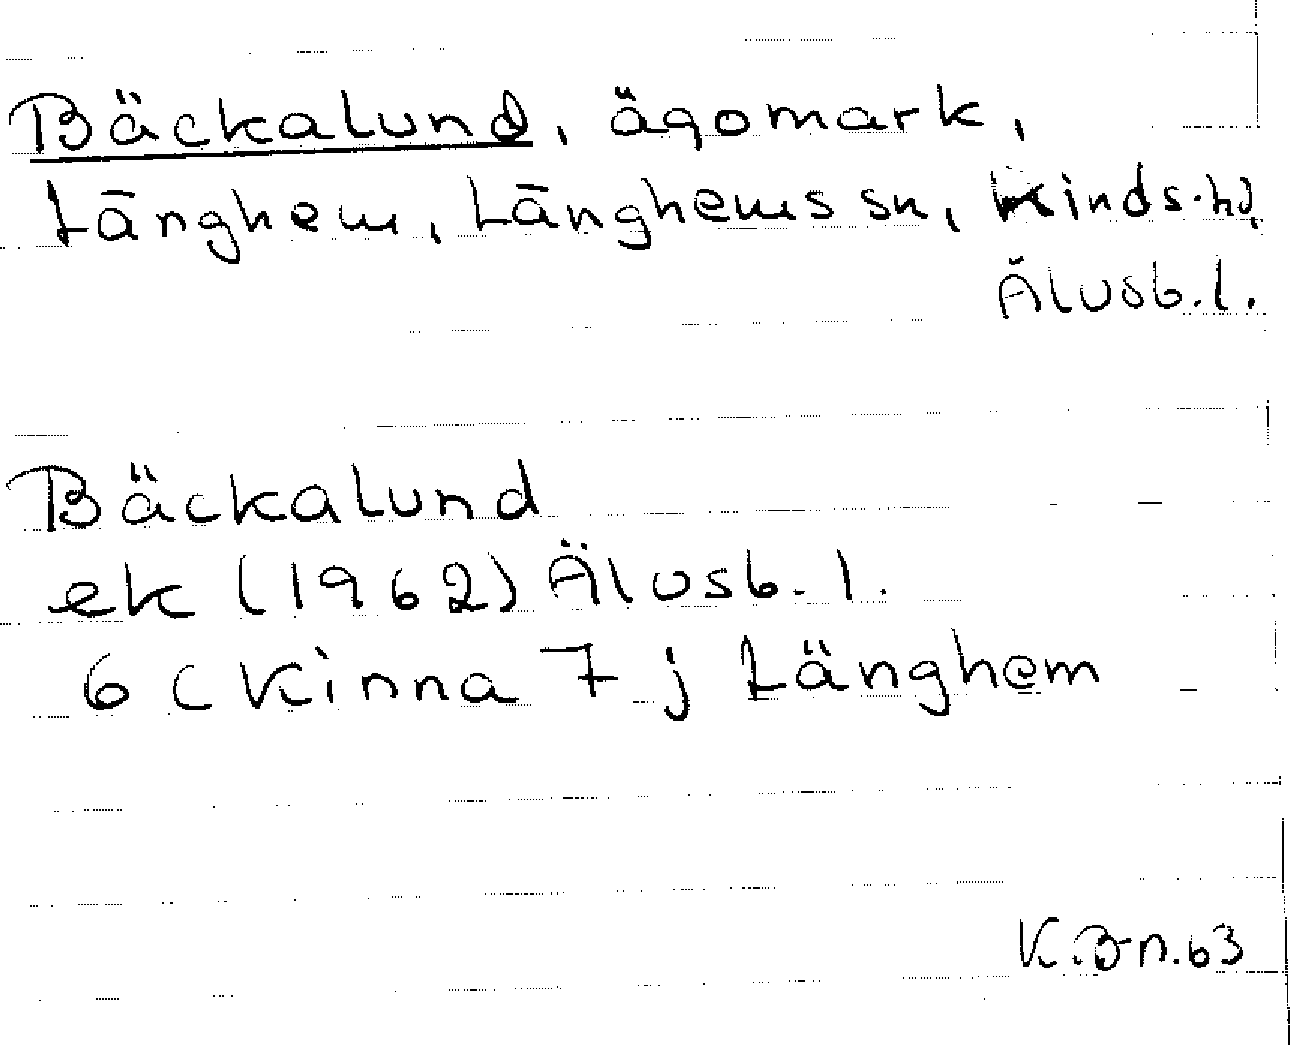 Bäckalund, ägomark,
Länghem, Länghems sn, Kinds hd,
Älvsb. l.
Bäckalund
ek (1962) Älvsb. l.
6 C Kinna 7 j Länghem
K. B-n. 63